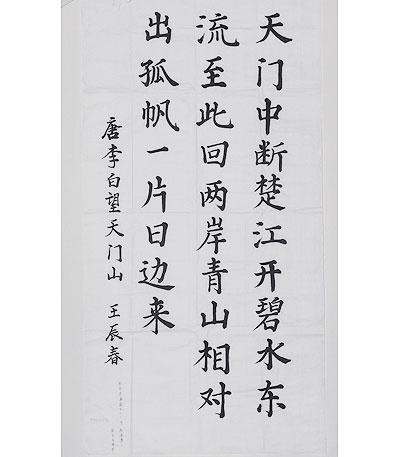 天门中断楚江开碧水东
流至此回两岸青山相对
出孤帆一片日边来
唐李白望天门山 王辰春